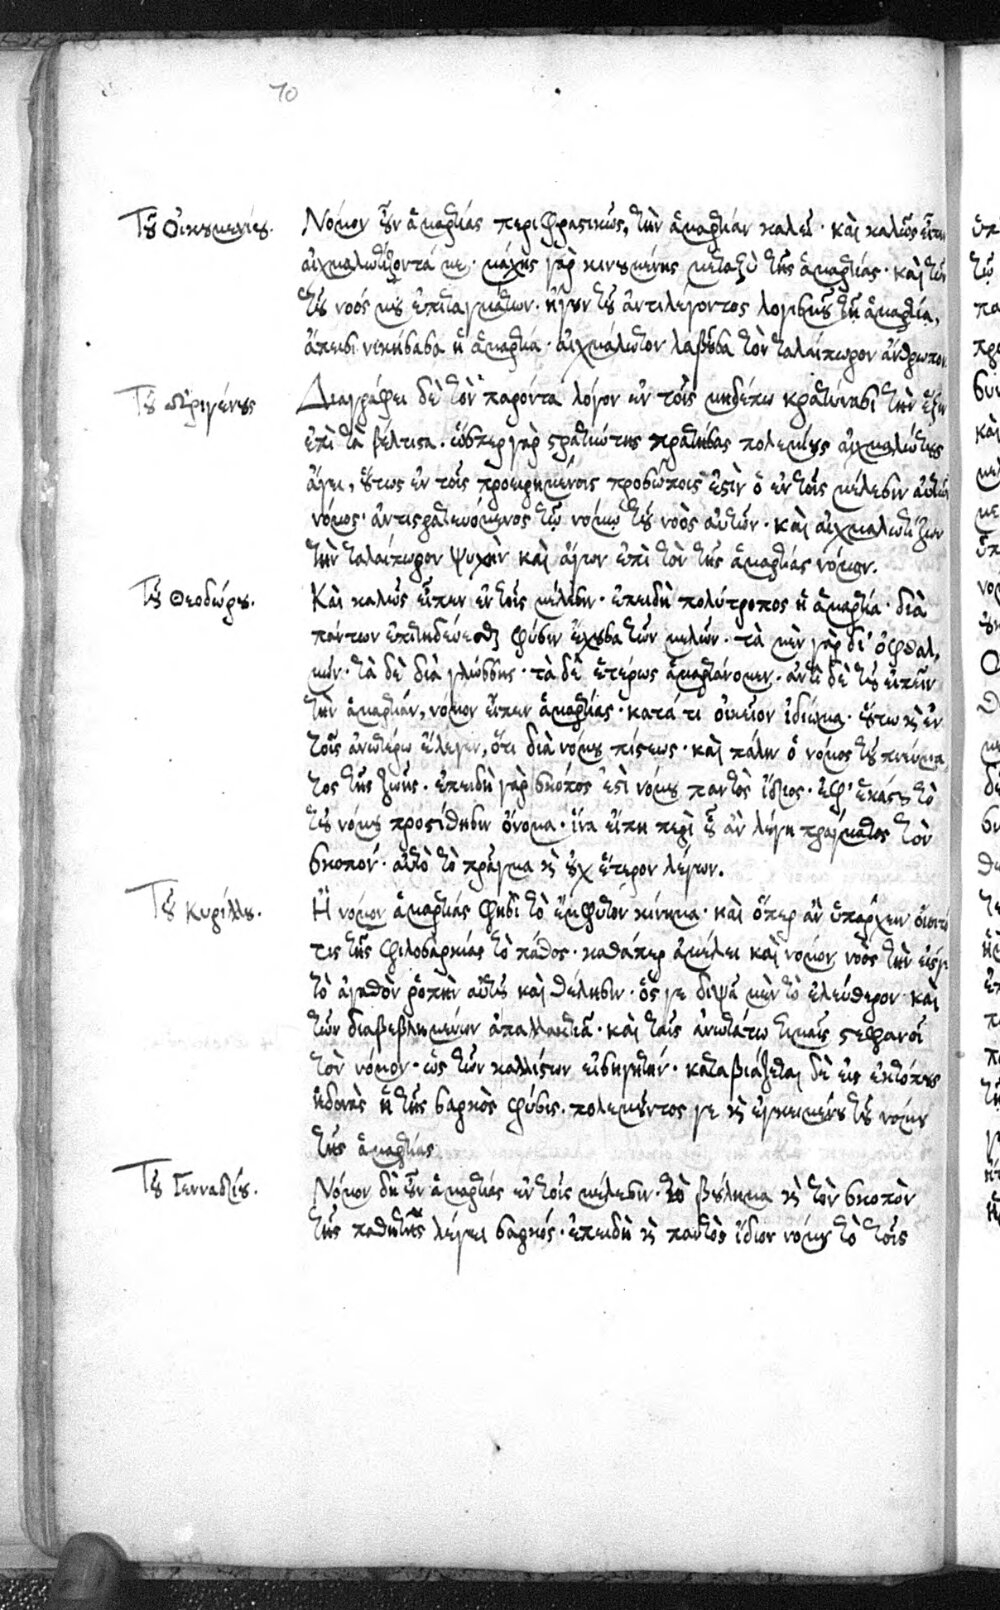 70
Τοῦ Οἰκουμενίου. Νόμον οὖν ἁμαρτίας περιφραστικῶς, τὴν ἁμαρτίαν καλεῖ· καὶ καλῶς εἶπεν
αἰχμαλωτίζοντά με· μάχης γὰρ κινουμένης μεταξὺ τῆς ἁμαρτίας· καὶ τῶν
τοῦ νοός μου ἐπιταγμάτων· ἤγουν τοῦ ἀντιλέγοντος λογισμοῦ τῇ ἁμαρτίᾳ,
ἄπεισι νικήσασα ἡ ἁμαρτία· αἰχμάλωτον λαβοῦσα τὸν ταλαίπωρον ἄνθρωπον
Τοῦ Ὠριγένους Διαγράφει δὲ τὸν παρόντα λόγον ἐν τοῖς μηδέπω κρατύνασι τὴν ἕξιν
ἐπὶ τὰ βέλτιστα. ὥσπερ γὰρ στρατιώτης κρατήσας πολεμίους αἰχμαλώτους
ἄγει, οὕτως ἐν τοῖς προειρημένοις προσώποις ἐστὶν ὁ ἐν τοῖς μέλεσιν αὐτῶν
νόμος· ἀντιστρατευόμενος τῷ νόμῳ τοῦ νοὸς αὐτῶν· καὶ αἰχμαλωτίζων
τὴν ταλαίπωρον ψυχὴν καὶ ἄγων ἐπὶ τὸν τῆς ἁμαρτίας νόμον.
Τοῦ Θεοδώρου. Καὶ καλῶς εἶπεν ἐν τοῖς μέλεσιν· ἐπειδὴ πολύτροπος ἡ ἁμαρτία· διὰ
πάντων ἐπιτηδεύεσθαι φύσιν ἔχουσα τῶν μελῶν· τὰ μὲν γὰρ δι' ὀφθαλ,
μῶν· τὰ δὲ διὰ γλώσσης· τὰ δὲ ἑτέρως ἁμαρτάνομεν· ἀντὶ δὲ τοῦ εἰπεῖν
τὴν ἁμαρτίαν, νόμον εἶπεν ἁμαρτίας· κατά τι οἰκεῖον ἰδίωμα· οὕτω καὶ ἐν
τοῖς ἀνωτέρω ἔλεγεν, ὅτι διὰ νόμου πίστεως· καὶ πάλιν ὁ νόμος τοῦ πνεύμα,
τος τῆς ζωῆς. ἐπειδὴ γὰρ σκόπος ἐστὶ νόμου παντὸς ἴδιος· ἐφ' ἑκάστου τὸ
τοῦ νόμου προστίθησιν ὄνομα· ἵνα εἴπῃ περὶ οὗ ἂν λέγῃ πράγματος τὸν
σκοπόν· αὐτὸ τὸ πρᾶγμα καὶ οὐχ ἕτερον λέγων.
Τοῦ Κυρίλλου. Ἢ νόμον ἁμαρτίας φησὶ τὸ ἔμφυτον κίνημα· καὶ ὅπερ ἂν ὑπάρχειν οἴοιτό
τις τῆς φιλοσαρκίας τὸ πάθος· καθάπερ ἀμέλει καὶ νόμον νοὸς τὴν εἰς γε
τὸ ἀγαθὸν ῥοπὴν αὐτοῦ καὶ θέλησιν· ὅς γε διψᾷ μὲν τὸ ἐλεύθερον καὶ
τῶν διαβεβλημένων ἀπαλλακτιᾷ· καὶ ταῖς ἀνωτάτω τιμαῖς στεφανοῖ
τὸν νόμον· ὡς τῶν καλλίστων εἰσηγητήν· καταβιάζεται δὲ εἰς ἐκτόπους
ἡδονὰς ἡ τῆς σαρκὸς φύσις· πολεμοῦντος γε καὶ ἐγκειμένου τοῦ νόμου
τῆς ἁμαρτίας
Τοῦ Γενναδίου. Νόμον δὴ οὖν ἁμαρτίας ἐν τοῖς μέλεσιν· τὸ βούλημα καὶ τὸν σκοπὸν
τῆς παθητῆς λέγει σαρκός· ἐπειδὴ καὶ παντὸς ἴδιον νόμου τὸ τοῖς